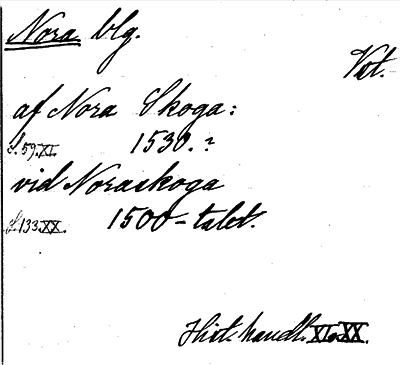 Nora blg.
Vst.
af Nora Skoga:
S. 59. XI. 1530.?
vid Noraskoga
S. 133. XX. 1500-talet.
Hist. handl. XI o. XX.